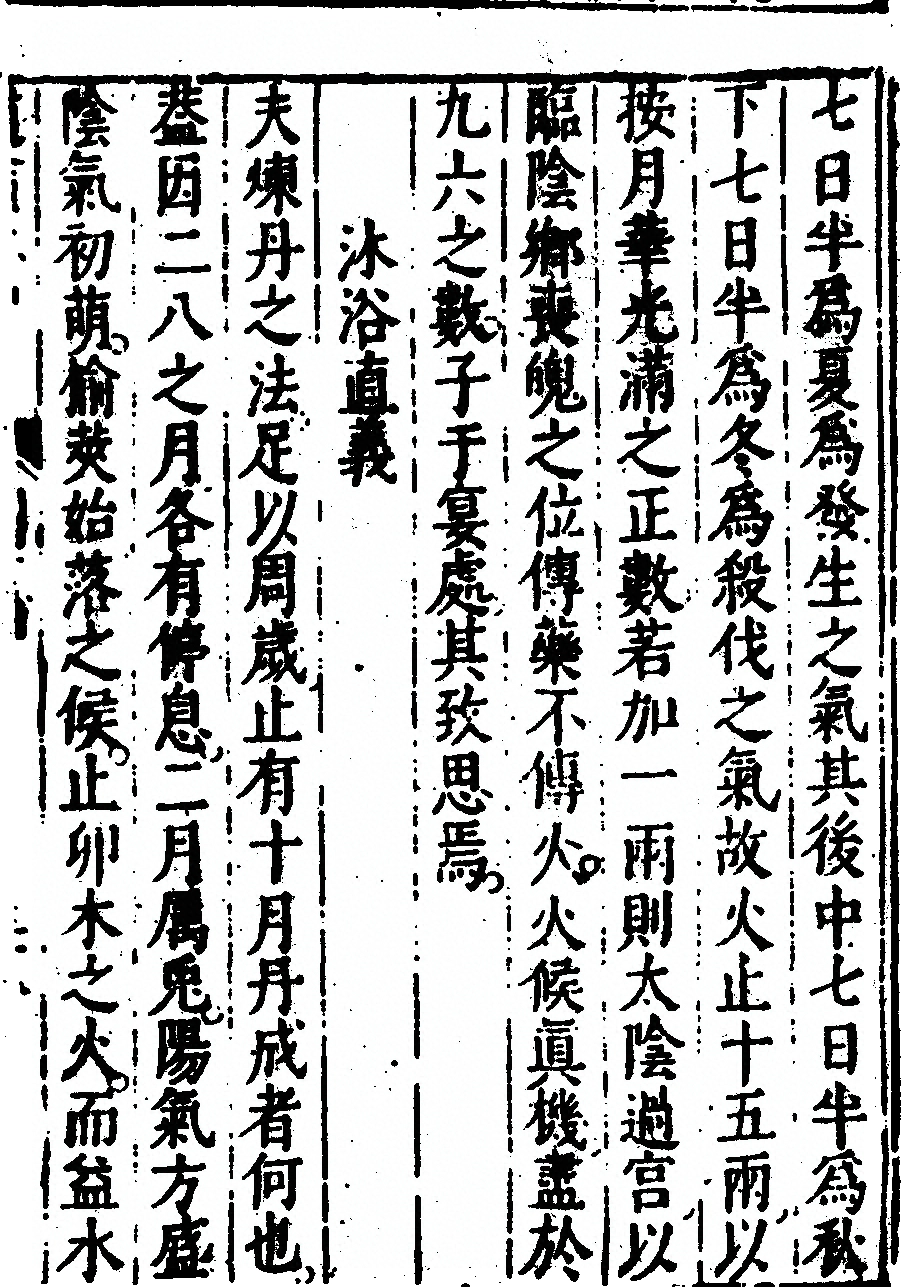 七日半爲夏爲發生之氣其後中七日半爲秋
下七日半爲冬爲殺伐之氣故火止十五兩以
按月華光滿之正數若加一兩則太陰過宮以
臨陰鄉喪魄之位傳藥不傳火火候眞機盡於
九六之數子于宴處其致思焉
沐浴直義
夫煉丹之法足以周歲止有十月丹成者何也
葢因二八之月各有停息二月屬兎陽氣方盛
陰氣初萌楡莢始落之候止卯木之火而益水